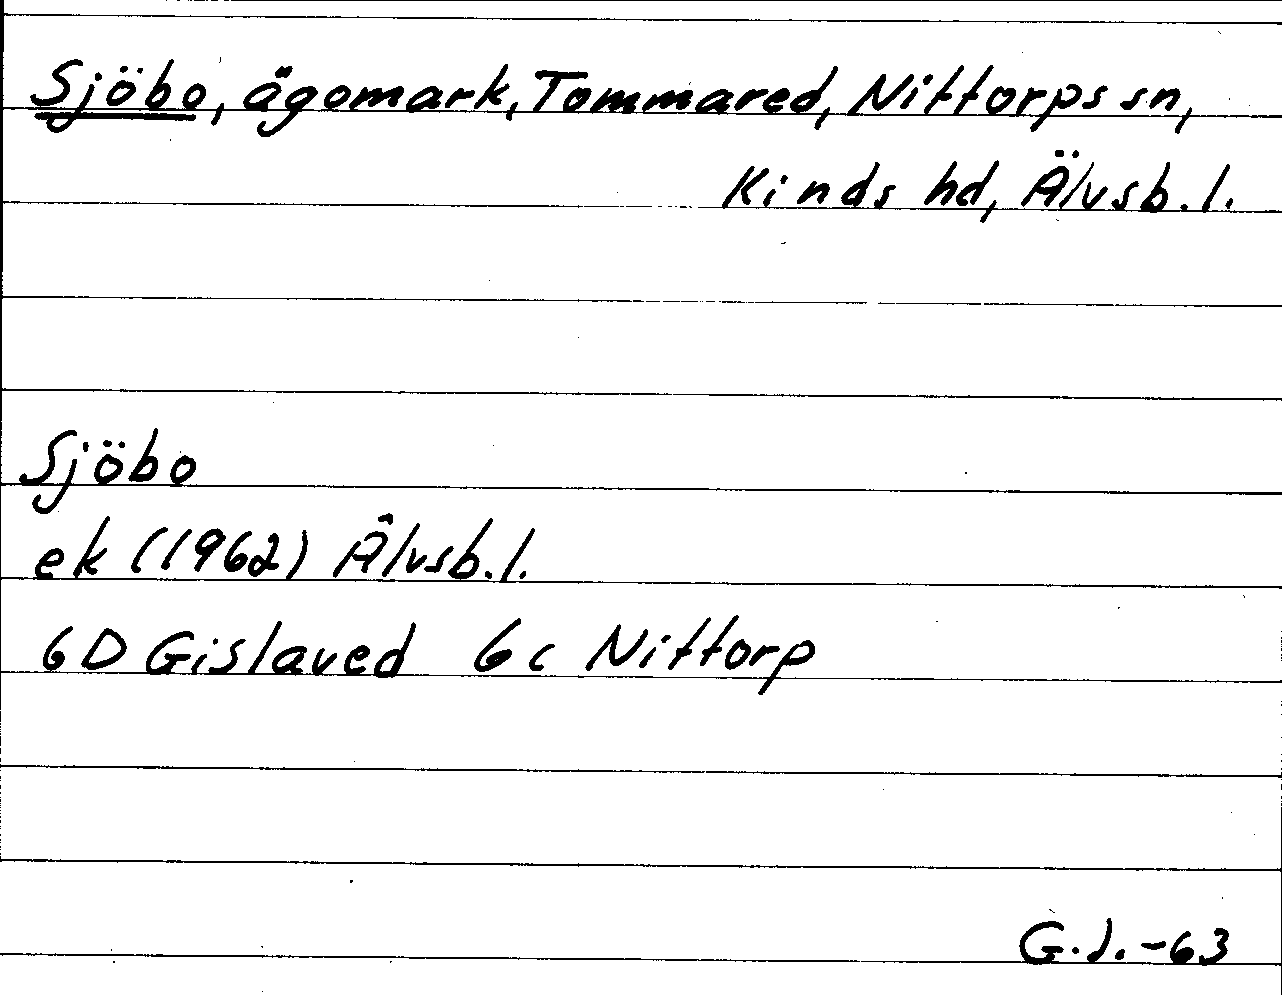 Sjöbo, ägomark, Tommared, Nittorps sn,
Kinds hd, Älvsb. l.
Sjöbo
ek (1962) Älvsb. l.
6D Gislaved 6c Nittorp
G.J. -63